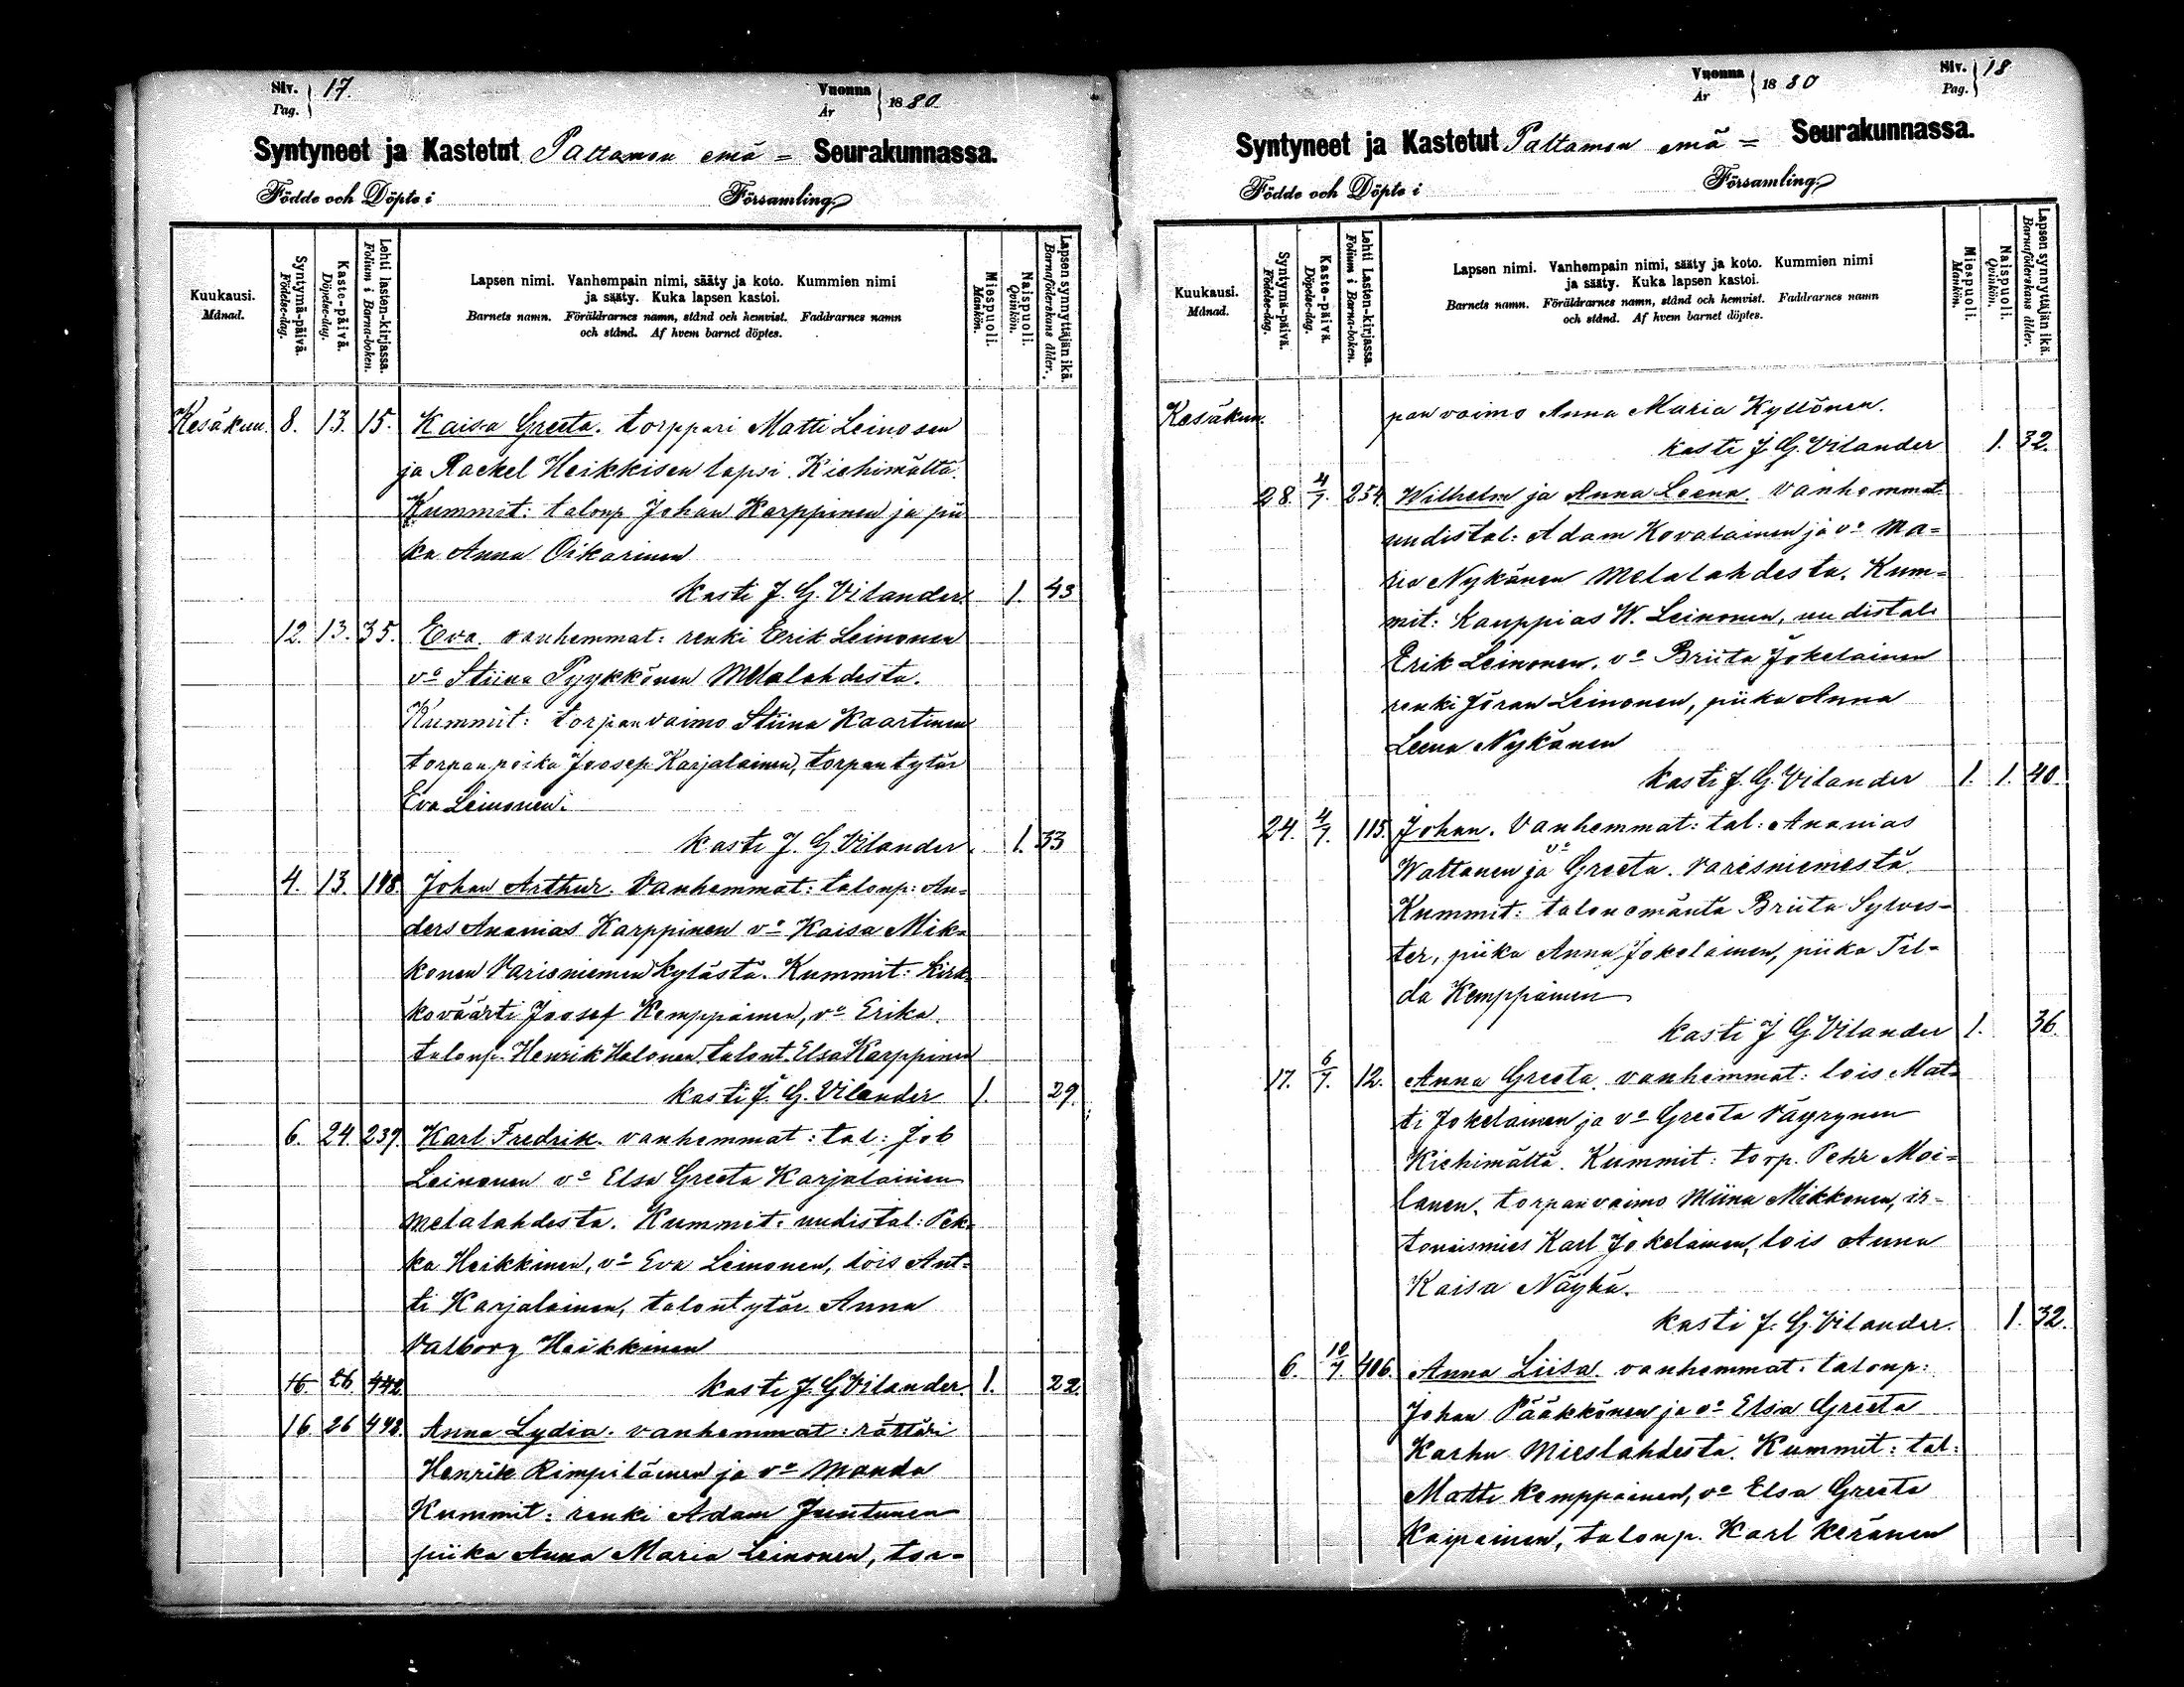 Siv. Pag. 17. Vuonna År 1880
Syntyneet ja Kastetut Paltamon emä= Seurakunnassa.
Födde och Döpte i Församling.
Kuukausi. Månad.
Syntymä-päivä. Födelse-dag.
Kaste-päivä. Döpelse-dag.
Lehti lasten-kirjassa. Folium i Barna-boken.
Lapsen nimi. Vanhempain nimi, sääty ja koto. Kummien nimi
ja sääty. Kuka lapsen kastoi.
Barnets namn. Föräldrarnes namn, stånd och hemvist. Faddrarnes namn
och stånd. Af hvem barnet döptes.
Miespuoli. Mankön.
Naispuoli. Qvinkön.
Lapsen synnyttäjän ikä. Barnaföderskans ålder.
Kesäkuu. 8. 13. 15. Kaisa Greeta. torppari Matti Leinosen
ja Rackel Heikkisen lapsi. Kiehimältä.
Kummit: talonp Johan Karppinen ja pii
ka Anna Oikarinen
kasti J. G. Vilander. 1. 43
12. 13. 35. Eva. vanhemmat: renki Erik Leinonen
vo Stiina Pyykkönen Melalahdesta.
Kummit: torpanvaimo Stiina Kaartinen
torpanpoika Joosep Karjalainen, torpantytär
Eva Leinonen.
kasti J. G. Vilander. 1. 33
4. 13. 148. Johan Arthur. Vanhemmat: talonp: An=
ders Ananias Karppinen vo Kaisa Mik=
konen Varisniemen kylästä. Kummit: kirk=
koväärti Joosef Kemppainen, vo Erika.
talonp. Henrik Halonen, talont. Elsa Karppinen
kasti J. G. Vilander 1. 29.
6. 24. 239. Karl Fredrik. vanhemmat: tal: Job
Leinonen vo Elsa Greeta Karjalainen
Melalahdesta. Kummit: uudistal: Pek=
ka Heikkinen, vo Eva Leinonen, lois Ant=
ti Karjalainen, talontytär Anna
Valborg Heikkinen
16. 26. 442 kasti J. G Vilander. 1. 22.
16. 26 448. Anna Lydia. vanhemmat: rättäri
Henrik Rimpiläinen ja vo Manda
Kummit: renki Adam Juntunen
piika Anna Maria Leinonen, tor=
Vuonna År 1880 Siv. Pag. 18
Syntyneet ja Kastetut Paltamon emä= Seurakunnassa.
Födde och Döpte i Församling.
Kuukausi. Månad.
Syntymä-päivä. Födelse-dag.
Kaste-päivä. Döpelse-dag.
Lehti Lasten-kirjassa. Folium i Barna-boken.
Lapsen nimi. Vanhempain nimi, sääty ja koto. Kummien nimi
ja sääty. Kuka lapsen kastoi.
Barnets namn. Föräldrarnes namn, stånd och hemvist. Faddrarnes namn
och stånd. Af hvem barnet döptes.
Miespuoli. Mankön.
Naispuoli. Qvinkön.
Lapsen synnyttäjän ikä. Barnaföderskans ålder.
Kesäkuu. pan vaimo Anna Maria Kyllönen.
kasti J. G. Vilander 1. 32.
28. 4/7 254. Wilhelm ja Anna Leena. vanhemmat
uudistal: Adam Kovalainen ja vo Ma=
ria Nykänen Melalahdesta. Kum=
mit: Kauppias W. Leinonen, uudistal:
Erik Leinonen, vo Briita Jokelainen
renki Jöran Leinonen, piika Anna
Leena Nykänen
kasti J. G. Vilander 1. 1. 40.
24. 4/7. 115. Johan. Vanhemmat: tal: Ananias
Wattanen ja vo Greeta. Varisniemestä.
Kummit: talonemäntä Briita Sylves=
ter, piika Anna Jokelainen, piika Til=
da Kemppainen
kasti J G Vilander 1. 36.
17. 6/7. 12. Anna Greeta. vanhemmat: lois Mat=
ti Jokelainen ja vo Greeta Väyrynen
Kiehimältä. Kummit: torp. Pehr Moi=
lanen, torpanvaimo Miina Mikkonen, ir=
tonaismies Karl Jokelainen, lois Anna
Kaisa Näykä.
kasti J. G. Vilander. 1. 32.
6. 10/7. 406. Anna Liisa. vanhemmat: talonp:
Johan Pääkkönen ja vo Elsa Greeta
Karhu Mieslahdesta. Kummit: tal:
Matti Kemppainen, vo Elsa Greeta
Kaipainen, talonp. Karl Keränen